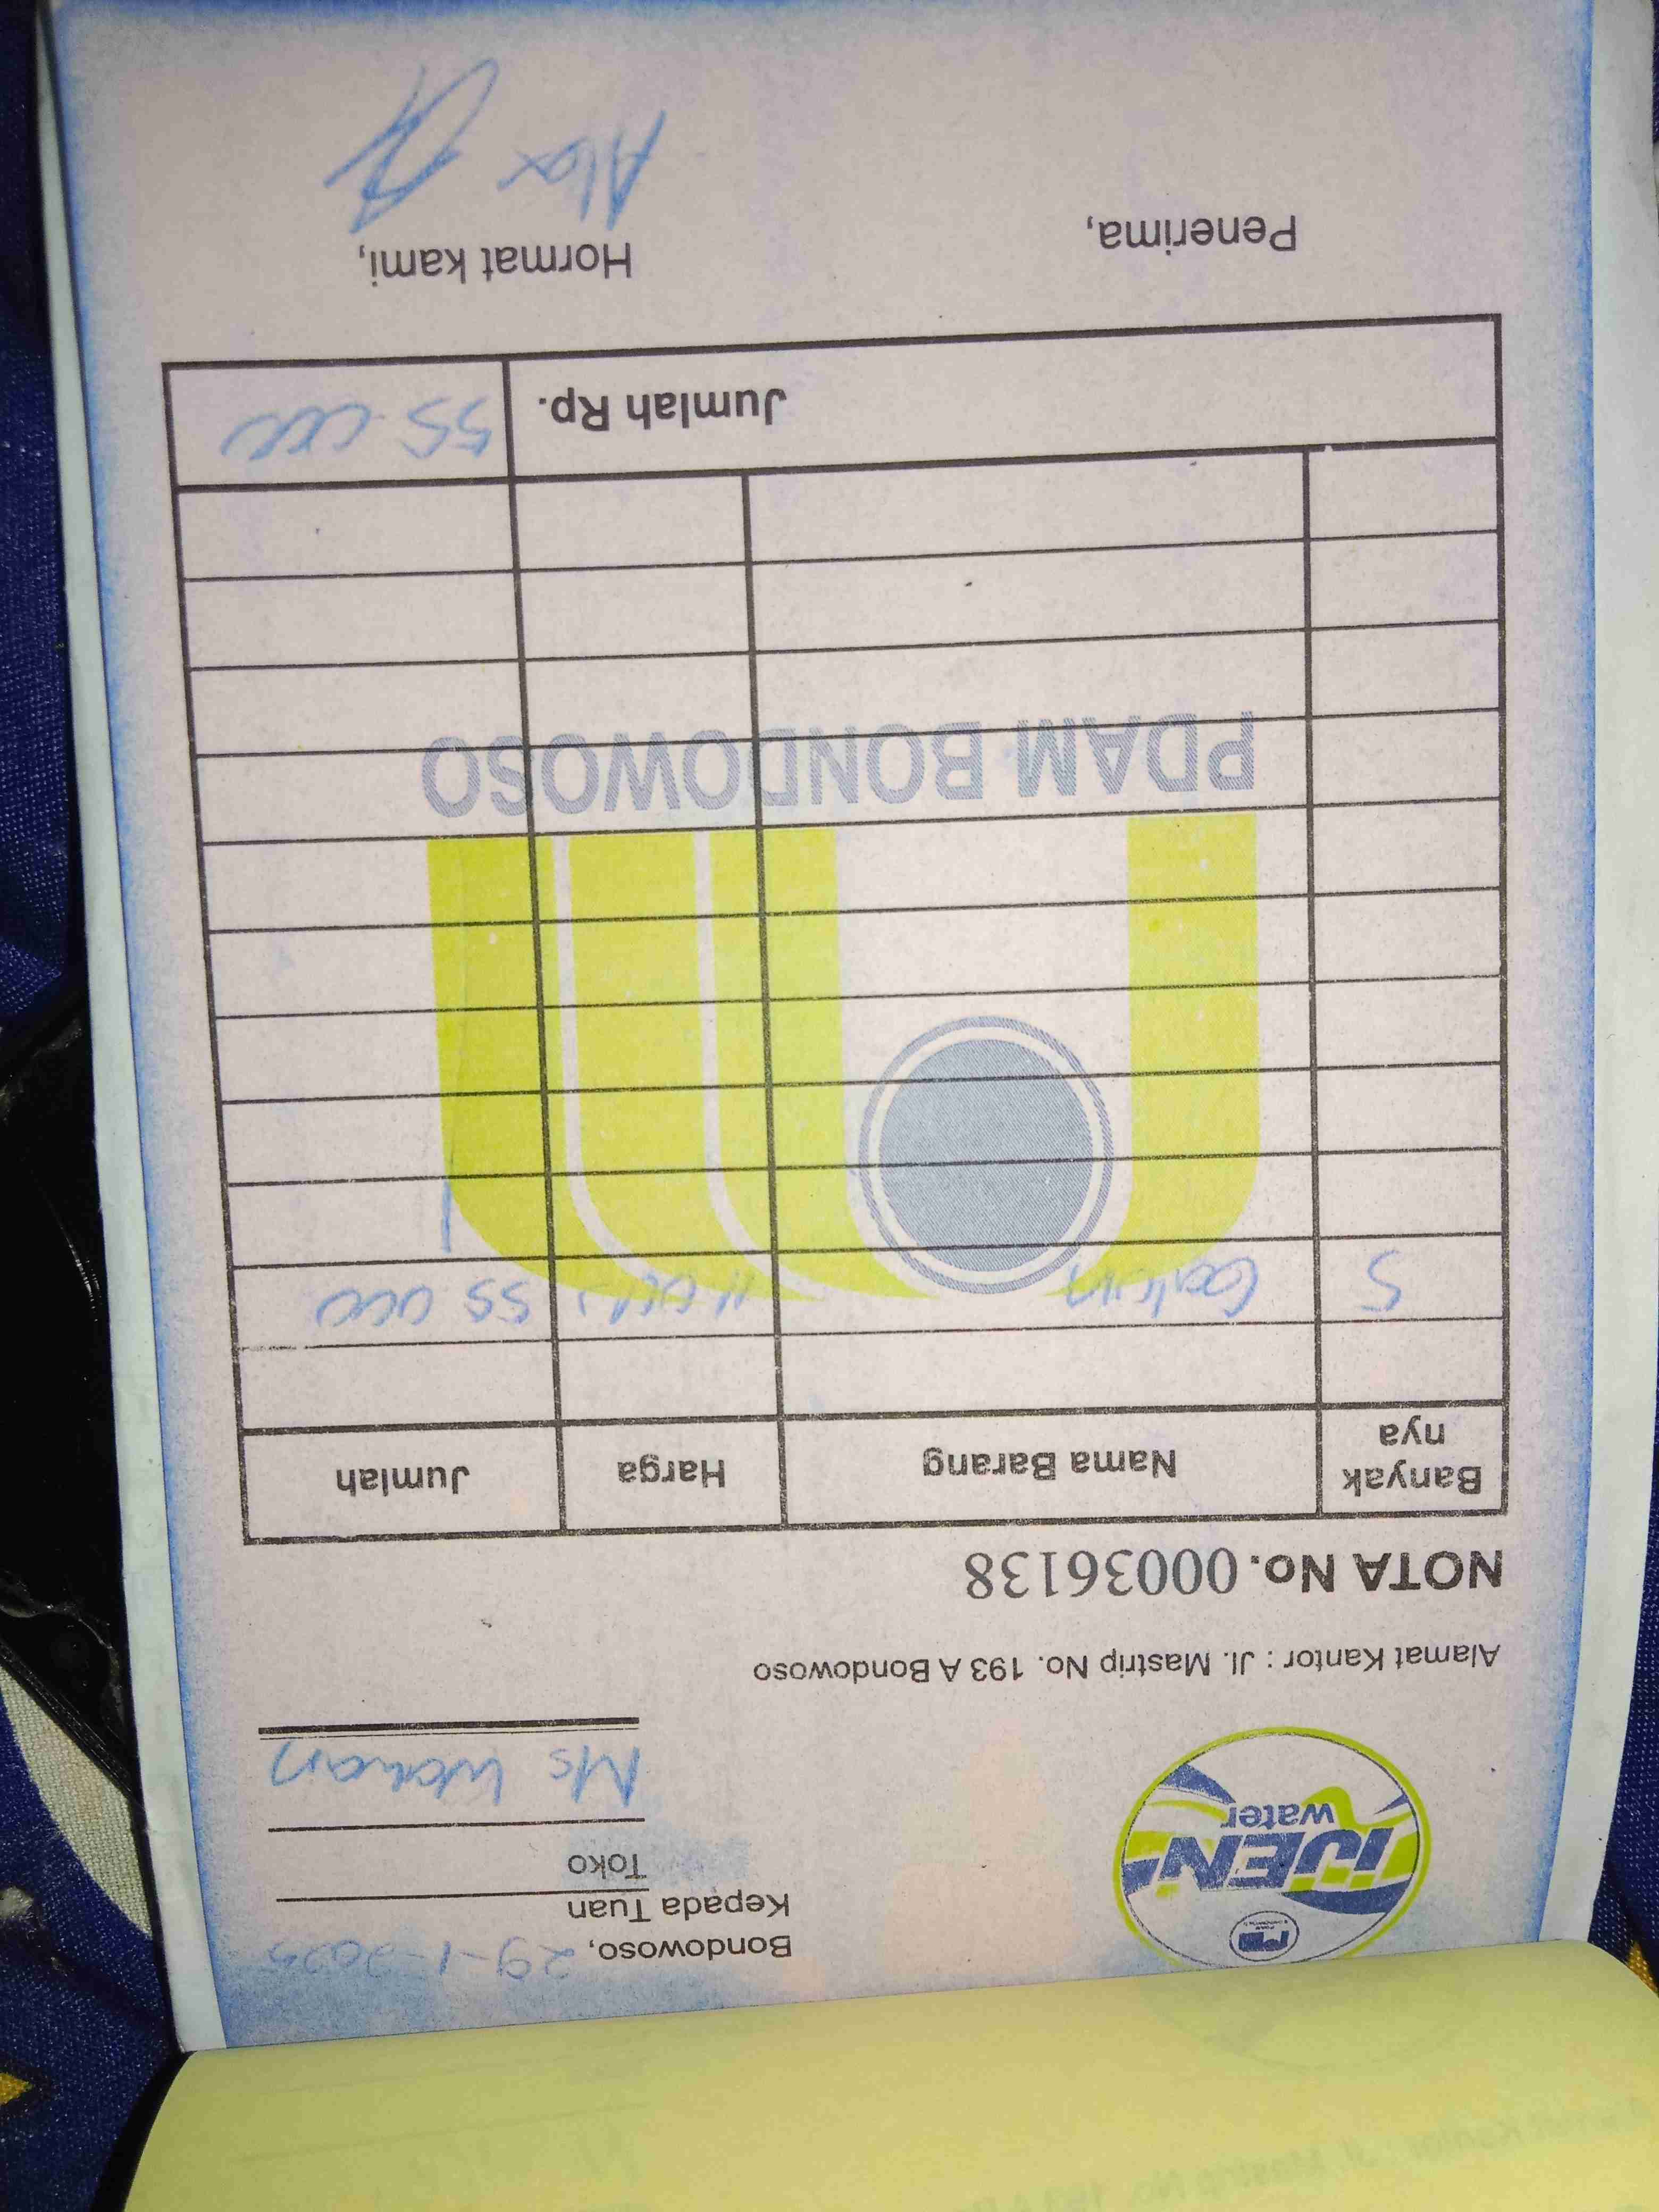 IJEN
water
Bondowoso, 29-1-2025
Kepada Tuan
Toko
Ms Wawan
Alamat Kantor : Jl. Mastrip No. 193 A Bondowoso
NOTA No. 00036138
Banyak nya Nama Barang Harga Jumlah
5 Galon 11.000 55 000
PDAM BONDOWOSO
Jumlah Rp. 55.000
Penerima, Hormat kami,
Alex